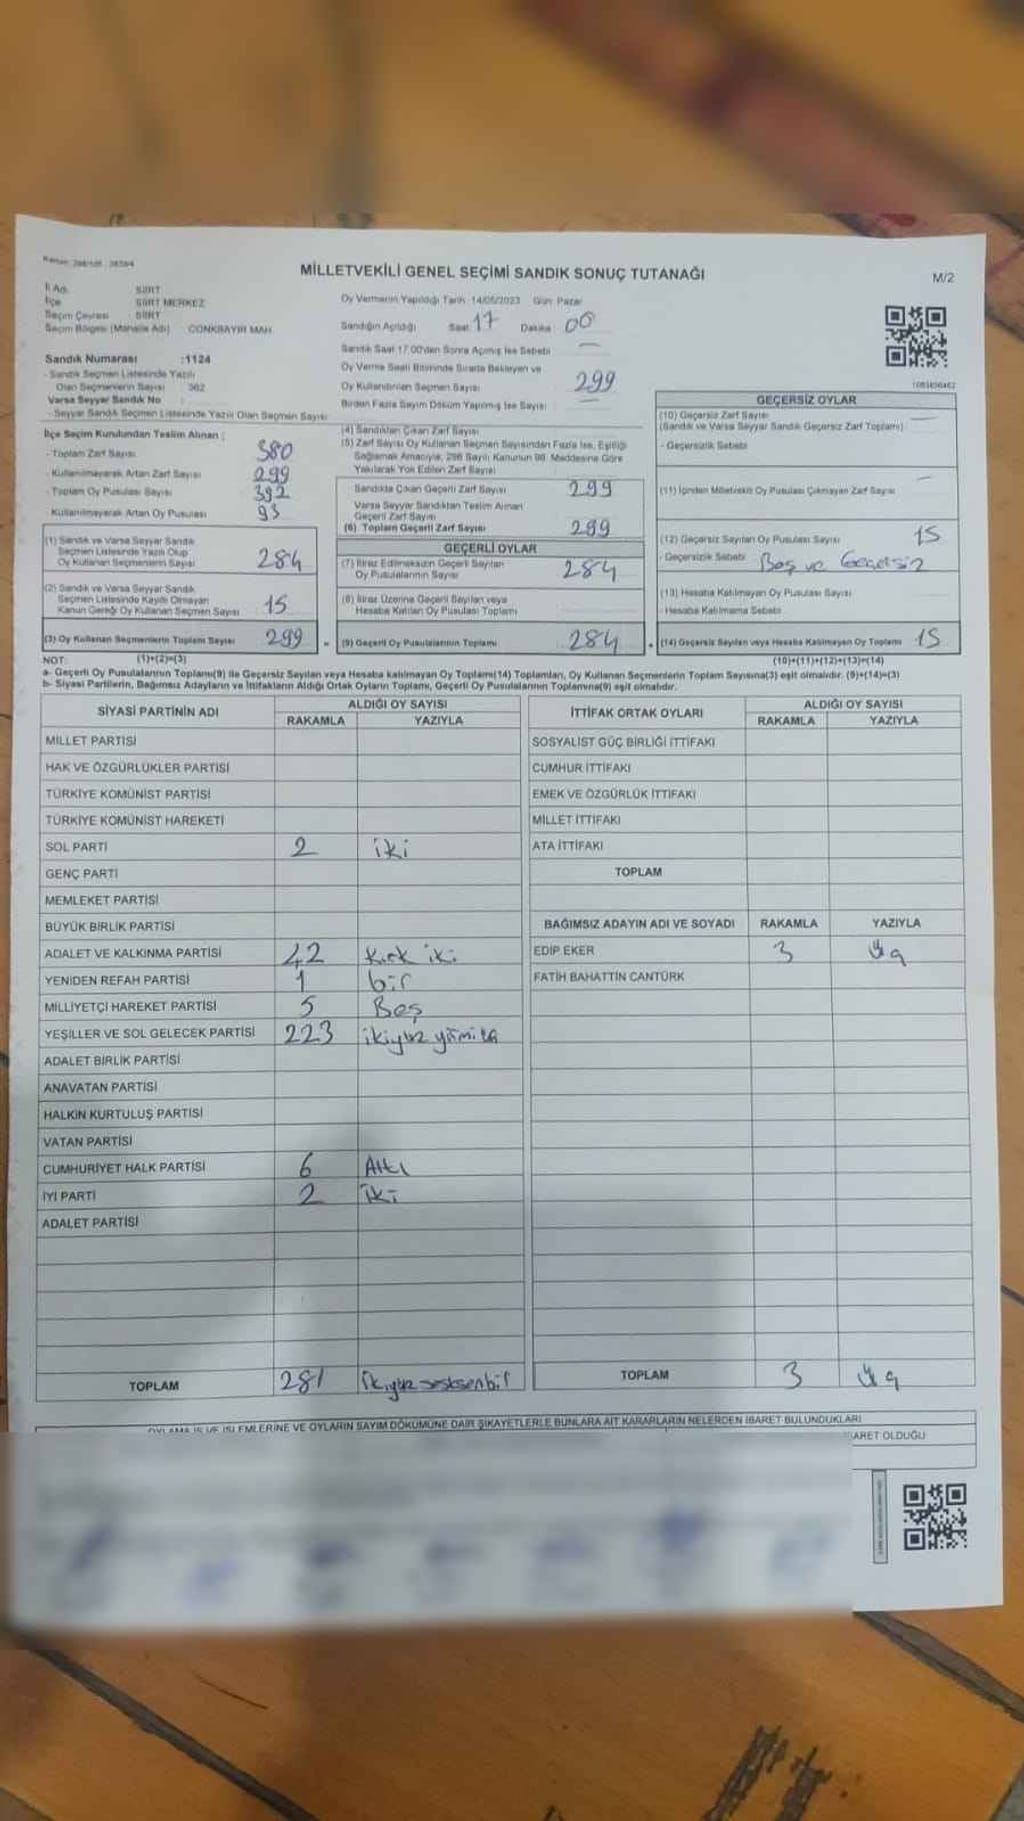 MİLLETVEKİLİ GENEL SEÇİMİ SANDIK SONUÇ TUTANAĞI
M/2
İl Adı : SİİRT
İlçe : SİİRT MERKEZ
Seçim Çevresi : SİİRT
Seçim Bölgesi (Mahalle Adı) CONKBAYIR MAH.
Oy Vermenin Yapıldığı Tarih :14/05/2023 Gün: Pazar
Sandığın Açıldığı Saat 17 Dakika 00
Sandık Saat 17.00'den Sonra Açılmış İse Sebebi —
Oy Verme Saati Bitiminde Sırada Bekleyen ve
Oy Kullandırılan Seçmen Sayısı 299
Birden Fazla Sayım Döküm Yapılmış İse Sayısı —
Sandık Numarası :1124
- Sandık Seçmen Listesinde Yazılı
Olan Seçmenlerin Sayısı 362
Varsa Seyyar Sandık No :
- Seyyar Sandık Seçmen Listesinde Yazılı Olan Seçmen Sayısı
İlçe Seçim Kurulundan Teslim Alınan :
- Toplam Zarf Sayısı 380
- Kullanılmayarak Artan Zarf Sayısı 299
- Toplam Oy Pusulası Sayısı 392
- Kullanılmayarak Artan Oy Pusulası 93
(1) Sandık ve Varsa Seyyar Sandık
Seçmen Listesinde Yazılı Olup
Oy Kullanan Seçmenlerin Sayısı 284
(2) Sandık ve Varsa Seyyar Sandık
Seçmen Listesinde Kayıtlı Olmayan
Kanun Gereği Oy Kullanan Seçmen Sayısı 15
(3) Oy Kullanan Seçmenlerin Toplam Sayısı 299
(1)+(2)=(3)
(4) Sandıktan Çıkan Zarf Sayısı
(5) Zarf Sayısı Oy Kullanan Seçmen Sayısından Fazla İse, Eşitliği
Sağlamak Amacıyla, 298 Sayılı Kanunun 98. Maddesine Göre
Yakılarak Yok Edilen Zarf Sayısı
Sandıkta Çıkan Geçerli Zarf Sayısı 299
Varsa Seyyar Sandıktan Teslim Alınan
Geçerli Zarf Sayısı
(6) Toplam Geçerli Zarf Sayısı 299
GEÇERLİ OYLAR
(7) İtiraz Edilmeksizin Geçerli Sayılan
Oy Pusulalarının Sayısı 284
(8) İtiraz Üzerine Geçerli Sayılan veya
Hesaba Katılan Oy Pusulası Toplamı
(9) Geçerli Oy Pusulalarının Toplamı 284
GEÇERSİZ OYLAR
(10) Geçersiz Zarf Sayısı —
(Sandık ve Varsa Seyyar Sandık Geçersiz Zarf Toplamı)
- Geçersizlik Sebebi
(11) İçinden Milletvekili Oy Pusulası Çıkmayan Zarf Sayısı —
(12) Geçersiz Sayılan Oy Pusulası Sayısı 15
- Geçersizlik Sebebi Boş ve Geçersiz
(13) Hesaba Katılmayan Oy Pusulası Sayısı
- Hesaba Katılmama Sebebi
(14) Geçersiz Sayılan veya Hesaba Katılmayan Oy Toplamı 15
(10)+(11)+(12)+(13)=(14)
NOT:
a- Geçerli Oy Pusulalarının Toplamı(9) ile Geçersiz Sayılan veya Hesaba katılmayan Oy Toplamı(14) Toplamları, Oy Kullanan Seçmenlerin Toplam Sayısına(3) eşit olmalıdır. (9)+(14)=(3)
b- Siyasi Partilerin, Bağımsız Adayların ve İttifakların Aldığı Ortak Oyların Toplamı, Geçerli Oy Pusulalarının Toplamına(9) eşit olmalıdır.
SİYASİ PARTİNİN ADI ALDIĞI OY SAYISI
RAKAMLA YAZIYLA
MİLLET PARTİSİ
HAK VE ÖZGÜRLÜKLER PARTİSİ
TÜRKİYE KOMÜNİST PARTİSİ
TÜRKİYE KOMÜNİST HAREKETİ
SOL PARTİ 2 iki
GENÇ PARTİ
MEMLEKET PARTİSİ
BÜYÜK BİRLİK PARTİSİ
ADALET VE KALKINMA PARTİSİ 42 Kırk iki
YENİDEN REFAH PARTİSİ 1 bir
MİLLİYETÇİ HAREKET PARTİSİ 5 Beş
YEŞİLLER VE SOL GELECEK PARTİSİ 223 ikiyüz
ADALET BİRLİK PARTİSİ
ANAVATAN PARTİSİ
HALKIN KURTULUŞ PARTİSİ
VATAN PARTİSİ
CUMHURİYET HALK PARTİSİ 6 Altı
İYİ PARTİ 2 iki
ADALET PARTİSİ
TOPLAM 281 ikiyüz seksenbir
İTTİFAK ORTAK OYLARI ALDIĞI OY SAYISI
RAKAMLA YAZIYLA
SOSYALİST GÜÇ BİRLİĞİ İTTİFAKI
CUMHUR İTTİFAKI
EMEK VE ÖZGÜRLÜK İTTİFAKI
MİLLET İTTİFAKI
ATA İTTİFAKI
TOPLAM
BAĞIMSIZ ADAYIN ADI VE SOYADI RAKAMLA YAZIYLA
EDİP EKER 3 Üç
FATİH BAHATTİN CANTÜRK
TOPLAM 3 Üç
OYLAMA İŞ VE İŞLEMLERİNE VE OYLARIN SAYIM DÖKÜMÜNE DAİR ŞİKAYETLERLE BUNLARA AİT KARARLARIN NELERDEN İBARET BULUNDUKLARI
OLDUĞU